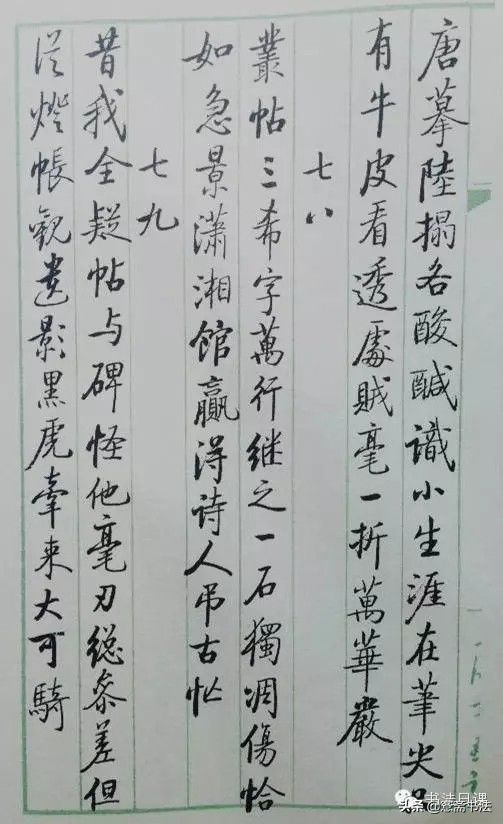 唐摹陸搨各酸鹹識小生涯在筆尖只
有牛皮看透處賊毫一折萬華嚴
七八
叢帖三希字萬行继之一石獨凋傷恰
如急景瀟湘館贏得诗人吊古忙
七九
昔我全疑帖与碑怪他毫刃総叅差但
従燈帳觀遺影黑虎牽来大可騎
书法日课
头条 书法